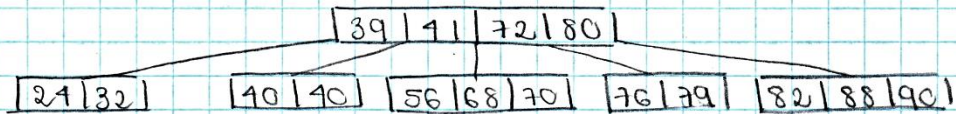 39 | 41 | 72 | 80
24 | 32
40 | 40
56 | 68 | 70
76 | 79
82 | 88 | 90